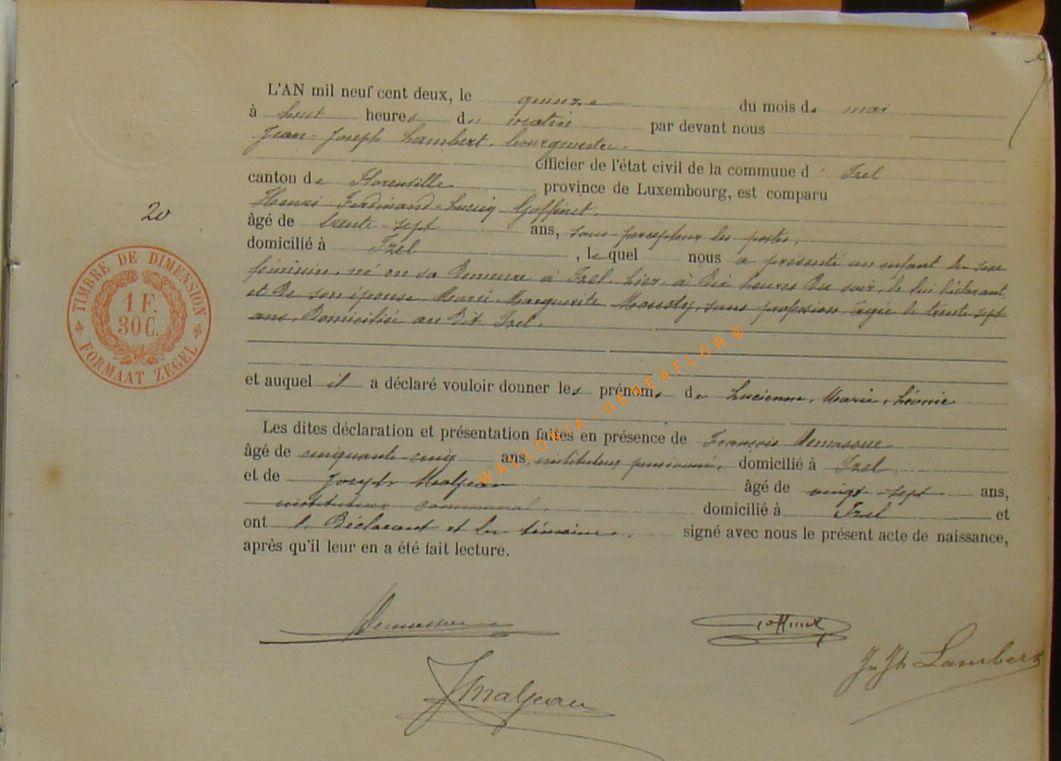 L'AN mil neuf cent deux, le quinze du mois de mai
à huit heures du matin par devant nous
Jean-Joseph Lambert, bourgmestre,
officier de l'état civil de la commune d' Izel
canton de Florenville, province de Luxembourg, est comparu
Henri-Ferdinand-Lucien Goffinet,
20
âgé de trente-sept ans, sous-percepteur des postes,
domicilié à Izel, lequel nous a présenté un enfant du sexe
féminin, né en sa demeure à Izel, hier, à dix heures du soir, de lui déclarant,
et de son épouse, Marie-Marguerite Mousty, sans profession, âgée de trente sept
ans, domiciliée au dit Izel.
TIMBRE DE DIMENSION
1 F.
30 C.
FORMAAT ZEGEL
et auquel il a déclaré vouloir donner les prénoms de Lucienne, Marie, Léonie
Les dites déclaration et présentation faites en présence de François Demasoue
âgé de cinquante-cinq ans, instituteur pensionné, domicilié à Izel,
et de Joseph Maljean âgé de vingt-sept ans,
instituteur communal, domicilié à Izel et
ont le déclarant et les témoins, signé avec nous le présent acte de naissance,
après qu'il leur en a été fait lecture.
WALLONIA-GENEAFLOR®
Goffinet
Jn Jh Lambert
JMaljean